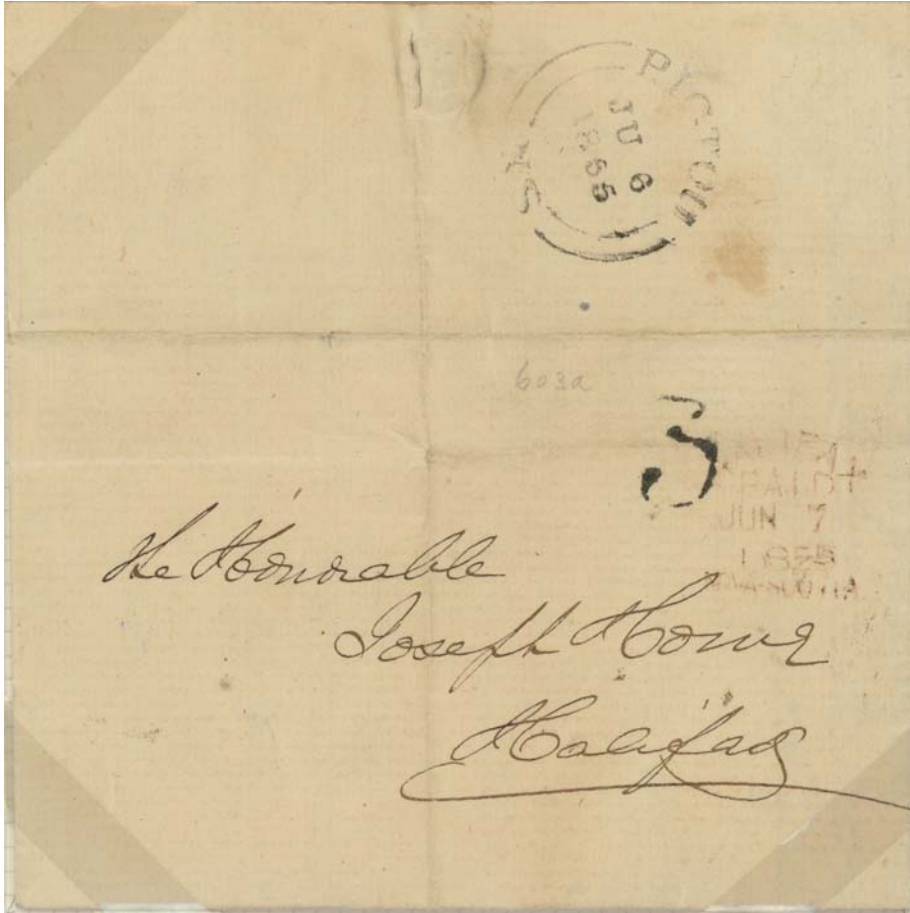 PICTOU
JU 6
1855
N.S
603a
5
PAID
JUN 7
1855
NOVA-SCOTIA
The Honorable
Joseph Howe
Halifax